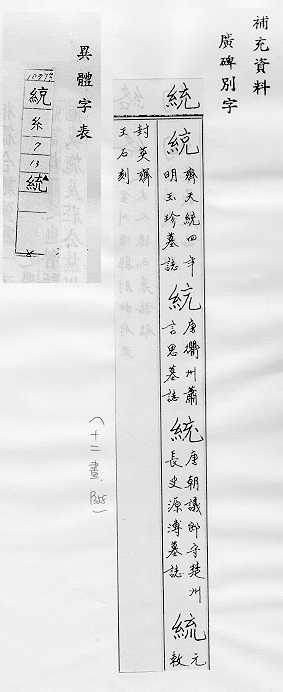 補充資料
廣碑別字
統
統 齊天統四年明玉珍墓誌 統 唐衢州蕭言思墓誌 統 唐朝議郎守楚州長史源溥墓誌 統 元敕
封英爵
王石刻
(十二畫
異體字表
糸
7
13
統